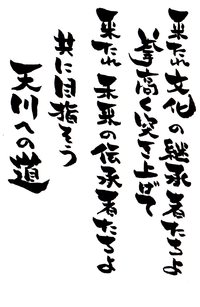 来たれ文化の継承者たちよ
拳高く突き上げて
来たれ未来の伝承者たちよ
共に目指そう
天川への道